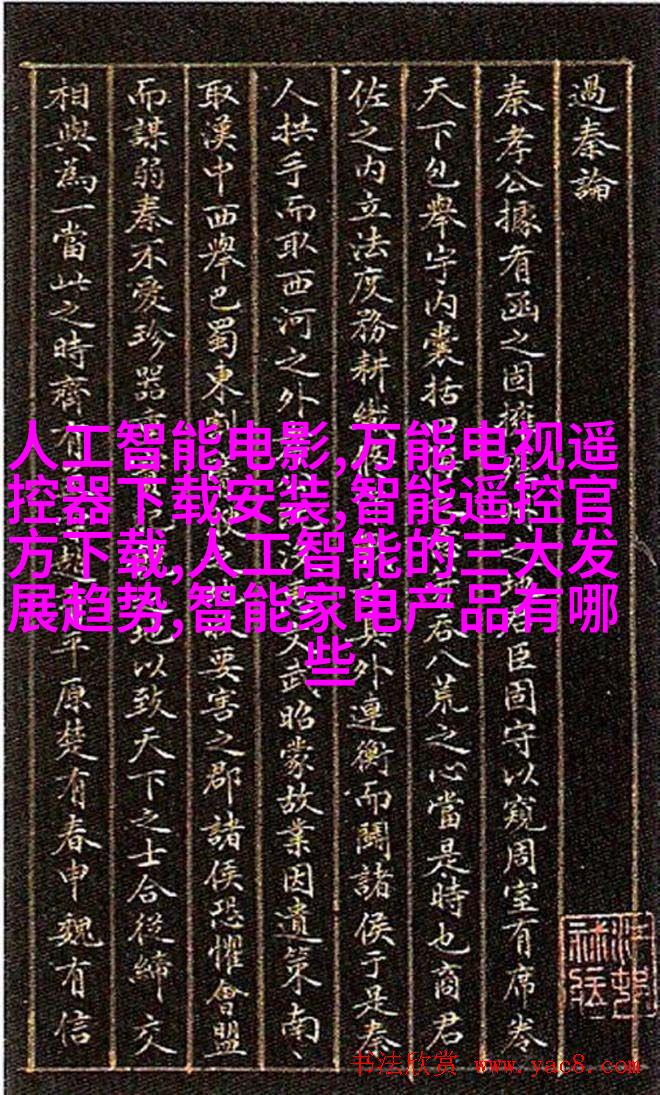 過秦論
秦孝公據有函之固擁臣固守以窺周室有席卷
天下包舉宇內囊括吞八荒之心當是時也商君
佐之內立法度務耕織其外連衡而鬭諸侯于是秦
人拱手而取西河之外武昭蒙故業因遺策南、
取漢中西舉巴蜀東割要害之郡諸侯恐懼會盟
而謀弱秦不愛珍器地以致天下之士合從締交
相與為一當此之時齊有趙平原楚有春申魏有信
人工智能电影,万能电视遥
控器下载安装,智能遥控官
方下载,人工智能的三大发
展趋势,智能家电产品有哪
些
书法欣赏 www.yac8.com